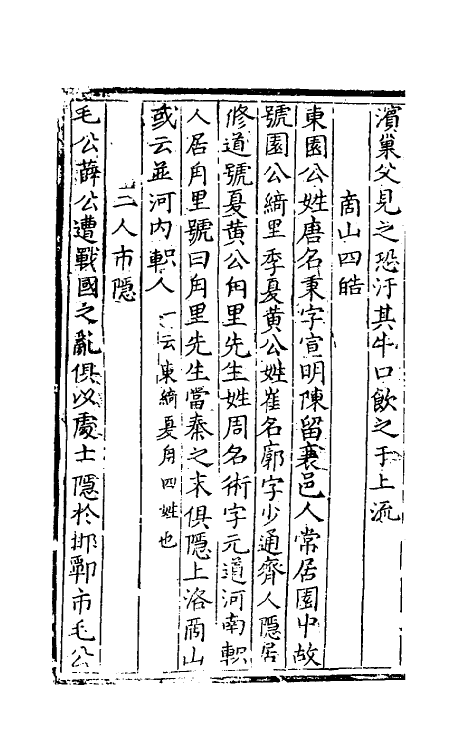 濵巢父見之恐汙其牛口飲之于上流
商山四皓
東園公姓唐名秉字宣明陳留襄邑人常居園中故
號園公綺里季夏黄公姓崔名廓字少通齊人隱居
修道號夏黄公甪里先生姓周名術字元道河南軹
人居甪里號曰甪里先生當秦之末俱隱上洛商山
或云並河内軹人一云東綺夏甪四姓也
二人市隱
毛公薛公遭戰國之亂俱以處士隱於邯鄲市毛公